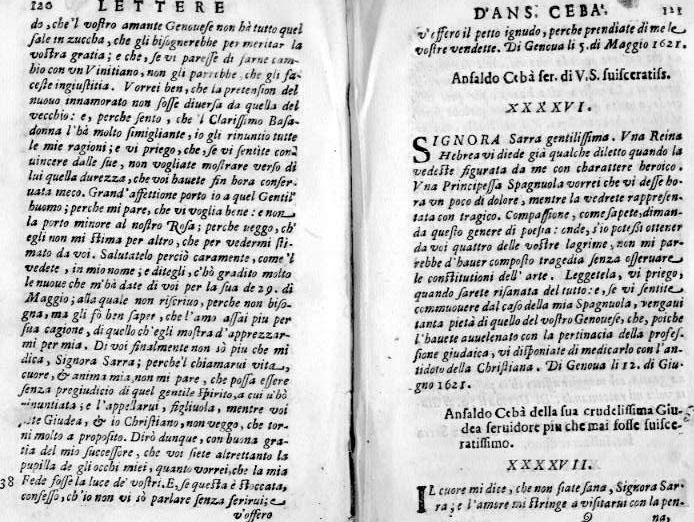 120 LETTERE
do, che'l vostro amante Genouese non hà tutto quel
sale in zuccha, che gli bisognerebbe per meritar la
vostra gratia; e che, se vi paresse di farne cam-
bio con vn Vinitiano, non gli parrebbe, che gli fa-
ceste ingiustitia. Vorrei ben, che la pretension del
nuouo innamorato non fosse diuersa da quella del
vecchio: e, perche sento, che 'l Clarissimo Basa-
donna l'hà molto simigliante, io gli rinuntio tutte
le mie ragioni; e vi priego, che, se vi sentite con
uincere dalle sue, non vogliate mostrare verso di
lui quella durezza, che voi hauete fin hora conser-
uata meco. Grand' affettione porto io a quel Gentil'
huomo; perche mi pare, che vi voglia bene: e non
la porto minore al nostro Rosa; perche ueggo, ch'
egli non mi stima per altro, che per vedermi sti-
mato da voi. Salutatelo perciò caramente, come'l
vedete, in mio nome; e ditegli, c'hò gradito molto
le nuoue che m'hà date di voi per la sua de 29. di
Maggio; alla quale non riscriuo, perche non biso-
gna, ma gli fò ben saper, che l'amo assai piu per
sua cagione, di quello ch'egli mostra d'apprezzar-
mi per mia. Di voi finalmente non sò piu che mi
dica, Signora Sarra; perche'l chiamarui vita,
cuore, & anima mia, non mi pare, che possa essere
senza pregiudicio di quel gentile spirito, a cui u'hò
rinuntiata; e l'appellarui, figliuola, mentre voi
siete Giudea, & io Christiano, non veggo, che tor-
ni molto a proposito. Dirò dunque, con buona gra-
tia del mio successore, che voi siete altrettanto la
pupilla de gli occhi miei, quanto vorrei, che la mia
38 Fede fosse la luce de' vostri. E, se questa è stoccata,
confesso, ch'io non vi sò parlare senza ferirui; e
v'offero
D'ANS. CEBA'. 121
v'offero il petto ignudo, perche prendiate di me le
vostre vendette. Di Genoua li 5. di Maggio 1621.
Ansaldo Cebà ser. di V.S. suisceratiss.
XXXXVI.
SIGNORA Sarra gentilissima. Vna Reina
Hebrea vi diede già qualche diletto quando la
vedeste figurata da me con charattere heroico.
Vna Principessa Spagnuola vorrei che vi desse ho-
ra vn poco di dolore, mentre la vedrete rappresen-
tata con tragico. Compassione, come sapete, diman-
da questo genere di poesia: onde, s'io potessi ottener
da voi quattro delle vostre lagrime, non mi par-
rebbe d'hauer composto tragedia senza osseruare
le constitutioni dell' arte. Leggetela, vi priego,
quando sarete risanata del tutto: e, se vi sentite
commuouere dal caso della mia Spagnuola, vengaui
tanta pietà di quello del vostro Genouese, che, poiche
l'hauete auuelenato con la pertinacia della profes-
sione giudaica, vi disponiate di medicarlo con l'an-
tidoto della Christiana. Di Genoua li 12. di Giu-
gno 1621.
Ansaldo Cebà della sua crudelissima Giu-
dea seruidore piu che mai fosse suisce-
ratissimo.
XXXXVII.
IL cuore mi dice, che non siate sana, Signora Sar-
ra; e l'amore mi stringe a visitarui con la pen-
na,